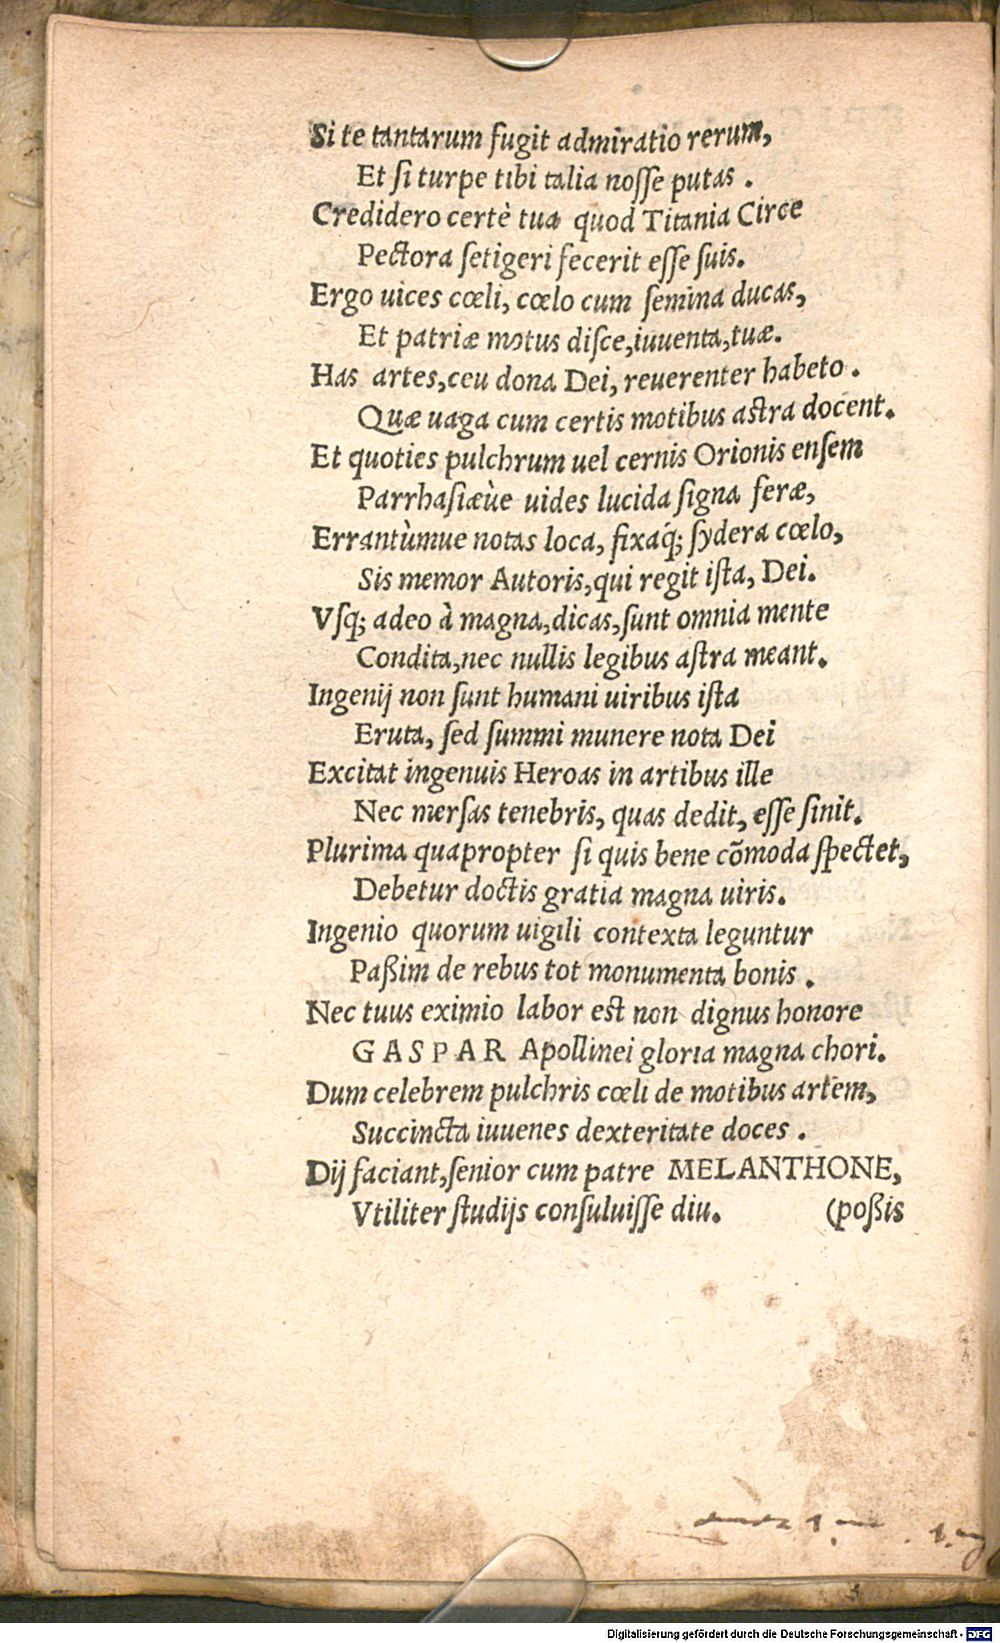 Si te tantarum fugit admiratio rerum,
Et ſi turpe tibi talia noſſe putas .
Credidero certè tua quod Titania Circe
Pectora ſetigeri fecerit eſſe ſuis.
Ergo uices cœli, cœlo cum ſemina ducas,
Et patriæ motus diſce,iuuenta,tuæ.
Has artes,ceu dona Dei, reuerenter habeto .
Quæ uaga cum certis motibus aſtra docent.
Et quoties pulchrum uel cernis Orionis enſem
Parrhaſiæùe uides lucida ſigna feræ,
Errantùmue notas loca, fixaq́; ſydera cœlo,
Sis memor Autoris,qui regit iſta, Dei.
Vſq; adeo à magna,dicas,ſunt omnia mente
Condita,nec nullis legibus aſtra meant.
Ingenij non ſunt humani uiribus iſta
Eruta, ſed ſummi munere nota Dei
Excitat ingenuis Heroas in artibus ille
Nec merſas tenebris, quas dedit, eſſe ſinit.
Plurima quapropter ſi quis bene cōmoda ſpectet,
Debetur doctis gratia magna uiris.
Ingenio quorum uigili contexta leguntur
Paßim de rebus tot monumenta bonis .
Nec tuus eximio labor est non dignus honore
GASPAR Apollinei gloria magna chori.
Dum celebrem pulchris cœli de motibus artem,
Succincta iuuenes dexteritate doces .
Dij faciant,ſenior cum patre MELANTHONE,
Vtiliter ſtudijs conſuluiſſe diu. (poßis
Digitalisierung gefördert durch die Deutsche Forschungsgemeinschaft - DFG